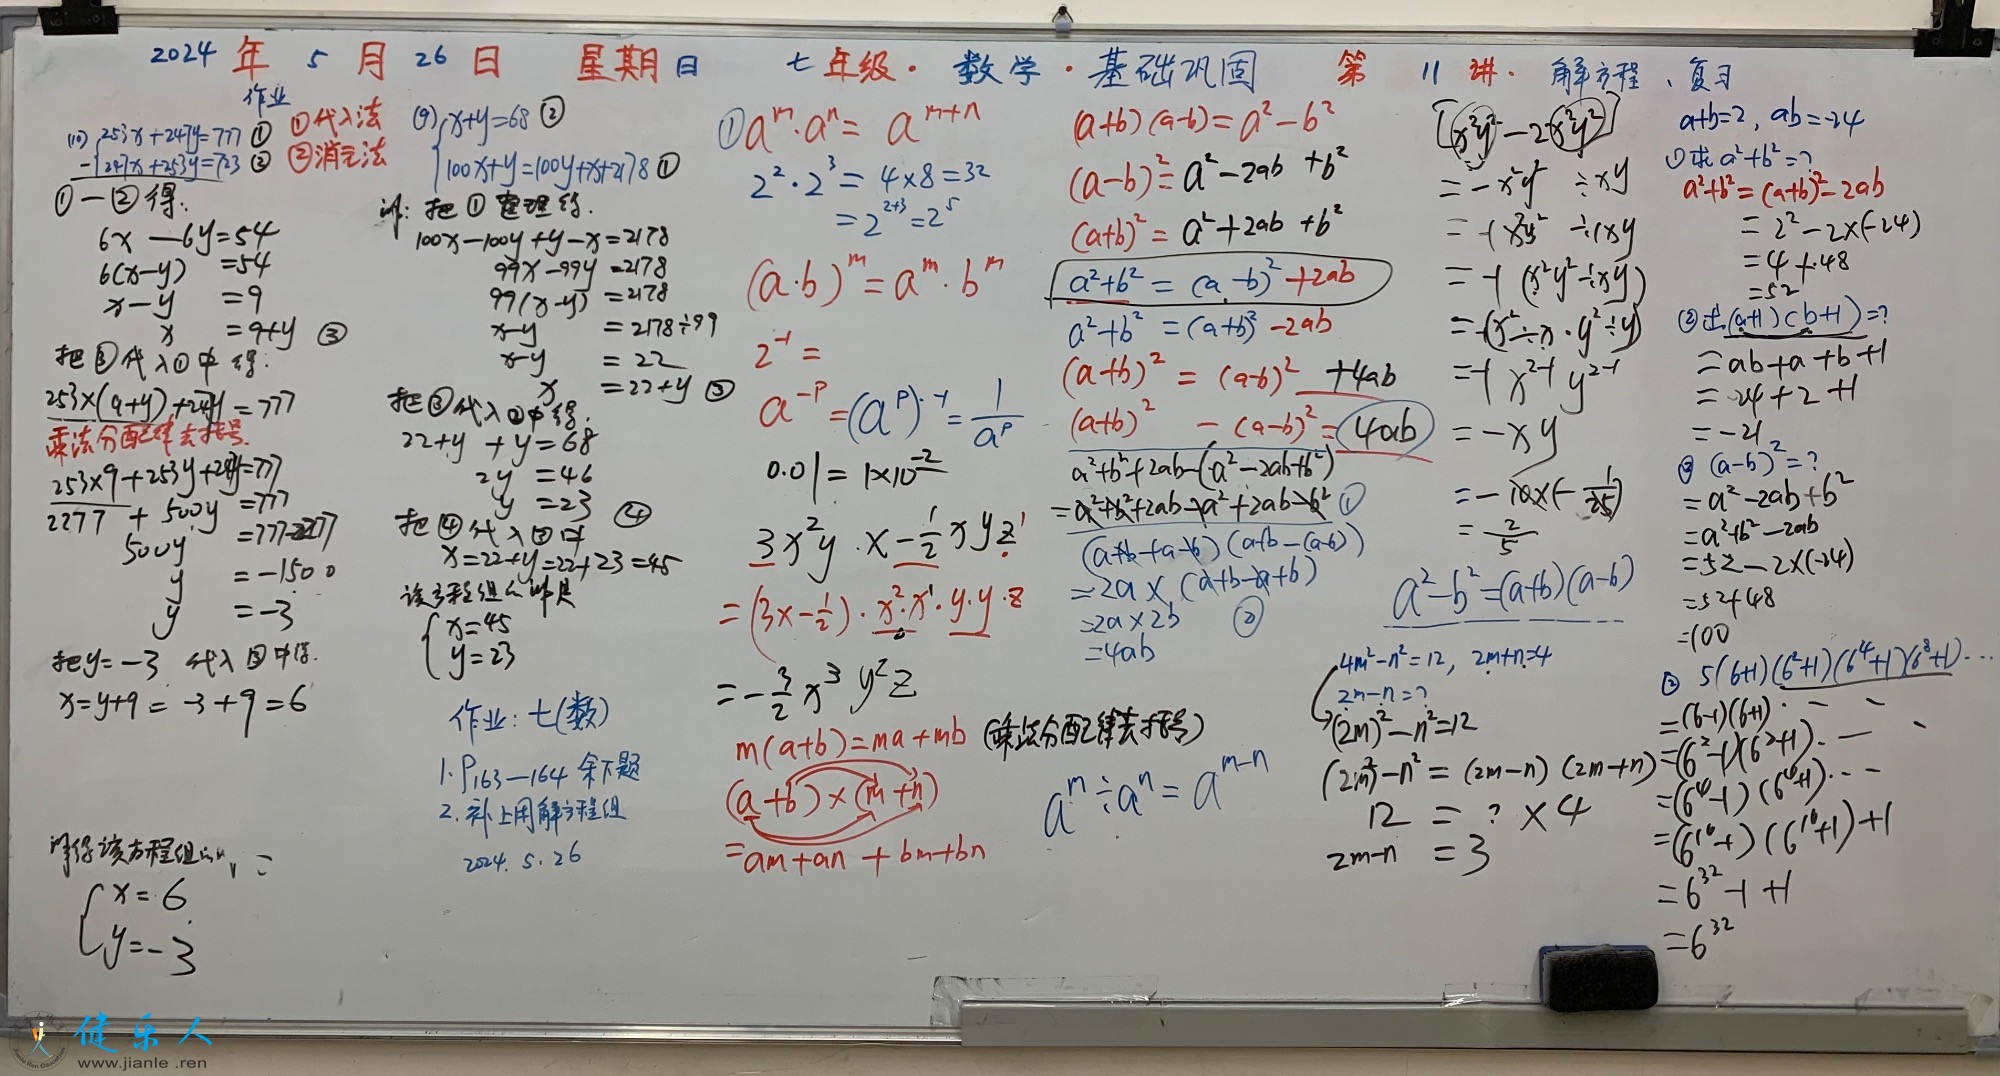 2024 年 5 月 26 日 星期日 七年级·数学·基础巩固 第 11 讲·解方程、复习
作业
(10) 253x+247y=777 ①
247x+253y=723 ②
①代入法
②消元法
①-②得:
6x-6y=54
6(x-y)=54
x-y=9
x=9+y ③
把③代入①中得:
253×(9+y)+247y=777
乘法分配律去括号.
253×9+253y+247y=777
2277+500y=777
500y=777-2277
y=-1500
y=-3
把y=-3 代入③中得.
x=y+9=-3+9=6
x=6
y=-3
(9) x+y=68 ②
100x+y=100y+x+2178 ①
解: 把①整理得.
100x-100y+y-x=2178
99x-99y=2178
99(x-y)=2178
x-y=2178÷99
x-y=22
x=22+y ③
把③代入②中得.
22+y+y=68
2y=46
y=23 ④
把④代入③中
x=22+y=22+23=45
该方程组的解是
x=45
y=23
作业: 七(数)
1. P163-164 余下题
2. 补上周解方程组
2024. 5. 26
①a^m·a^n=a^(m+n)
2²·2³=4×8=32
=2^(2+3)=2⁵
(a·b)^m=a^m·b^m
2⁻¹=
a^(-p)=(a^p)^(-1)=1/a^p
0.01=1×10⁻²
3x²y·x-1/2xyz¹
=(3×-1/2)·x²·x¹·y·y·z
=-3/2x³y²z
m(a+b)=ma+mb (乘法分配律去括号)
(a+b)×(m+n)
=am+an+bm+bn
a^m÷a^n=a^(m-n)
(a+b)(a-b)=a²-b²
(a-b)²=a²-2ab+b²
(a+b)²=a²+2ab+b²
a²+b²=(a-b)²+2ab
a²+b²=(a+b)²-2ab
(a+b)²=(a-b)²+4ab
(a+b)²-(a-b)²=4ab
a²+b²+2ab-(a²-2ab+b²)
=a²+b²+2ab-a²+2ab-b² ①
(a+b+a-b)(a+b-(a-b))
=2a×(a+b-a+b)
=2a×2b ②
=4ab
[x²y²-2x²y²]
=-x²y²÷xy
=-1x²y²÷1xy
=-1(x²y²÷xy)
=-(x²÷x·y²÷y)
=-1x²⁻¹y²⁻¹
=-xy
=-10×(-1/25)
=2/5
a²-b²=(a+b)(a-b)
4m²-n²=12, 2m+n=4
2m-n=?
(2m)²-n²=12
(2m)²-n²=(2m-n)(2m+n)
12=?×4
2m-n=3
a+b=2, ab=-24
①求a²+b²=?
a²+b²=(a+b)²-2ab
=2²-2×(-24)
=4+48
=52
②求(a+1)(b+1)=?
=ab+a+b+1
=-24+2+1
=-21
③(a-b)²=?
=a²-2ab+b²
=a²+b²-2ab
=52-2×(-24)
=52+48
=100
② 5(6+1)(6²+1)(6⁴+1)(6⁸+1)…
=(6-1)(6+1)·---
=(6²-1)(6²+1)·--
=(6⁴-1)(6⁴+1)·--
=(6¹⁶-1)(6¹⁶+1)+1
=6³²-1+1
=6³²
健乐人
www.jianle.ren